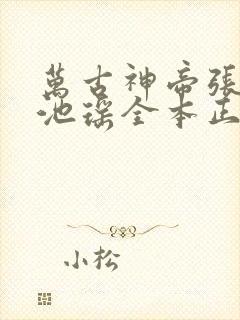 萬古神帝張
池瑤全本正
小松